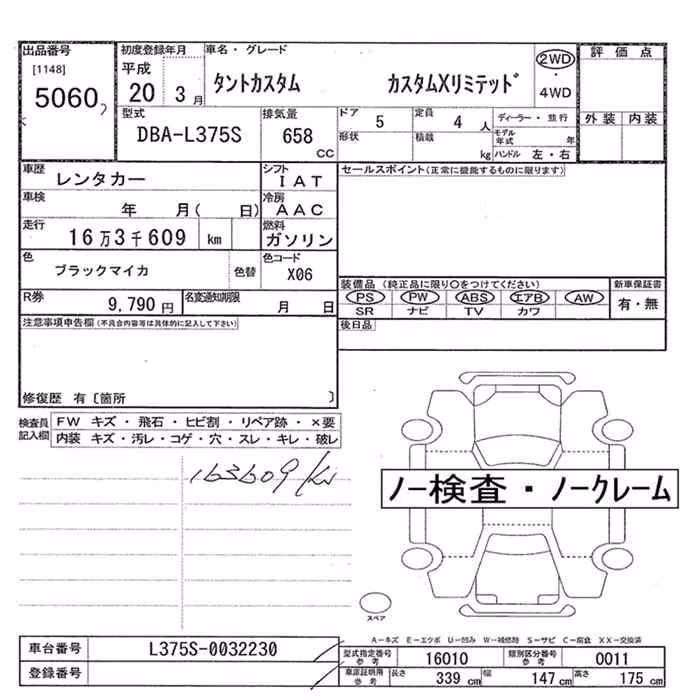 出品番号 初度登録年月 車名・グレード 2WD 評価点
[1148] 平成 タントカスタム カスタムXリミテッド ・
5060 20 3月 4WD
型式 排気量 ドア 5 定員 4人 ディーラー・並行 外装 内装
DBA-L375S 658 形状 積載 モデル年式 年
CC kg ハンドル 左・右
車歴 レンタカー シフト IAT セールスポイント(正常に機能するものに限ります)
車検 年 月( 日) 冷房 AAC
走行 16万3千609 km 燃料 ガソリン
色 ブラックマイカ 色替 色コード X06
装備品(純正品に限り○をつけてください) 新車保証書
R券 9,790円 名変通知期限 月 日 PS PW ABS エアB AW 有・無
SR ナビ TV カワ
注意事項申告欄(不具合内容等は具体的に記入して下さい) 後日品
修復歴 有〔箇所 〕
検査員記入欄 FW キズ・飛石・ヒビ割・リペア跡・×要
内装 キズ・汚レ・コゲ・穴・スレ・キレ・破レ
163609km
ノー検査・ノークレーム
スペア
A-キズ E-エクボ U-凹み W-補修跡 S-サビ C-腐食 XX-交換済
車台番号 L375S-0032230 型式指定番号 参考 16010 類別区分番号 参考 0011
登録番号 車庫証明用 参考 長さ 339cm 幅 147cm 高さ 175cm